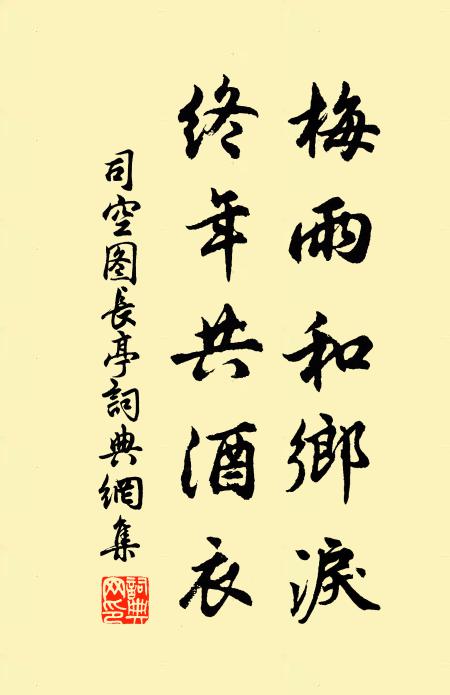 梅雨和鄉淚
終年共酒衣
司空图長亭詞典網集
詞典網印